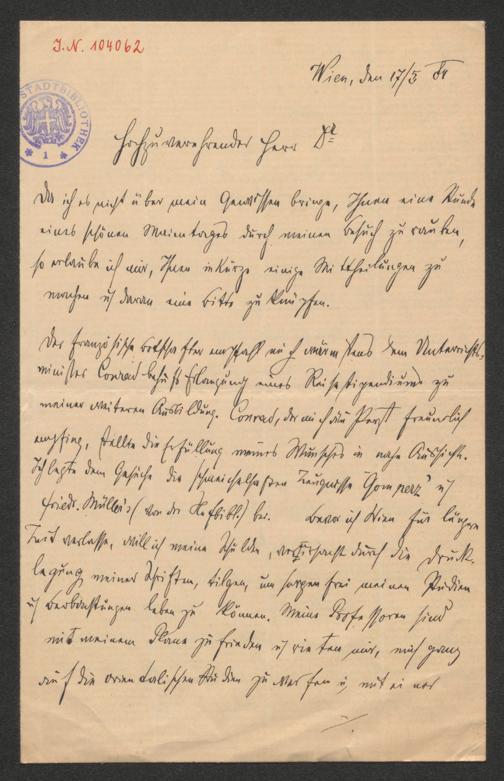 J.N. 104062
STADTBIBLIOTHEK
1
Wien, den 17/5 84
Hochzuverehrender Herr Dr
Da ich es nicht über mein Gewissen bringe, Ihnen eine Stunde
eines schönen Maientages durch meinen Besuch zu rauben,
so erlaube ich mir, Ihnen in Kürze einige Mittheilungen zu
machen u daran eine Bitte zu knüpfen.
Der französische Botschafter empfahl mich wärmstens dem Unterrichts-
minister Conrad behufs Erlangung eines Reisestipendiums zu
meiner weiteren Ausbildung. Conrad, der mich äußerst freundlich
empfing, stellte die Erfüllung meines Wunsches in nahe Aussicht.
Ich legte dem Gesuche die schmeichelhaften Zeugnisse Gomperz' u
Friedr. Müller's (von der Hofbibl.) bei. Bevor ich Wien für längere
Zeit verlasse, will ich meine Schulden, verursacht durch die Druck-
legung meiner Schriften, tilgen, um sorgenfrei meinen Studien
u Beobachtungen leben zu können. Meine Professoren sind
mit meinem Plane zufrieden u rieten mir, mich ganz
auf die orientalischen Studien zu werfen u, mit einer